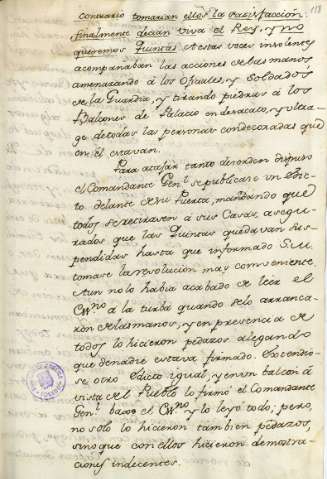 118
contrario tomarian ellos la satisfacción
finalmente decian viva el Rey, y no
queremos Quintas. A estas voces insolentes
acompañaban las acciones de las manos
amenazando á los Oficiales, y Soldados
de la Guardia, y tirando piedras á los
Balcones de Palacio en desacato, y ultra-
ge de todas las personas condecoradas que
en él estavan.
Para atajar tanto desorden dispuso
el Comandante Genl. se publicase un Edic-
to delante de su Puerta, mandando que
todos se retirasen á sus Casas, asegu-
rados que las Quintas quedavan sus-
pendidas hasta que informado S.M.
tomase la resolucion mas conveniente.
Aun no lo havia acabado de leer el
Essno á la turba quando se lo arranca-
ron de las manos, y en presencia de
todos lo hicieron pedazos alegando
que de nadie estava firmado. Excendió-
se otro Edicto igual, y en un balcón á
vista del Pueblo lo firmó el Comandante
Genl. baxó el Essno y lo leyó todo; pero,
no solo lo hicieron tambien pedazos,
sino que con ellos hicieron demostra-
ciones indecentes.